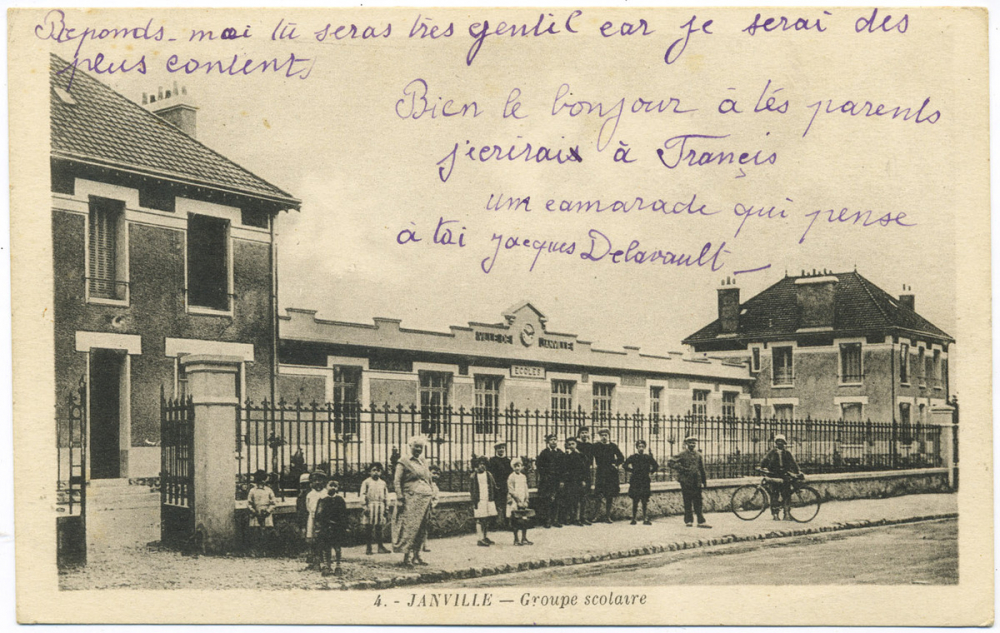 Reponds-moi tu seras très gentil car je serai des
plus content,
Bien le bonjour à tés parents
j'ecrirais à Françis
um camarade qui pense
à toi Jacques Delavault
VILLE DE JANVILLE
ECOLES
4. - JANVILLE — Groupe scolaire